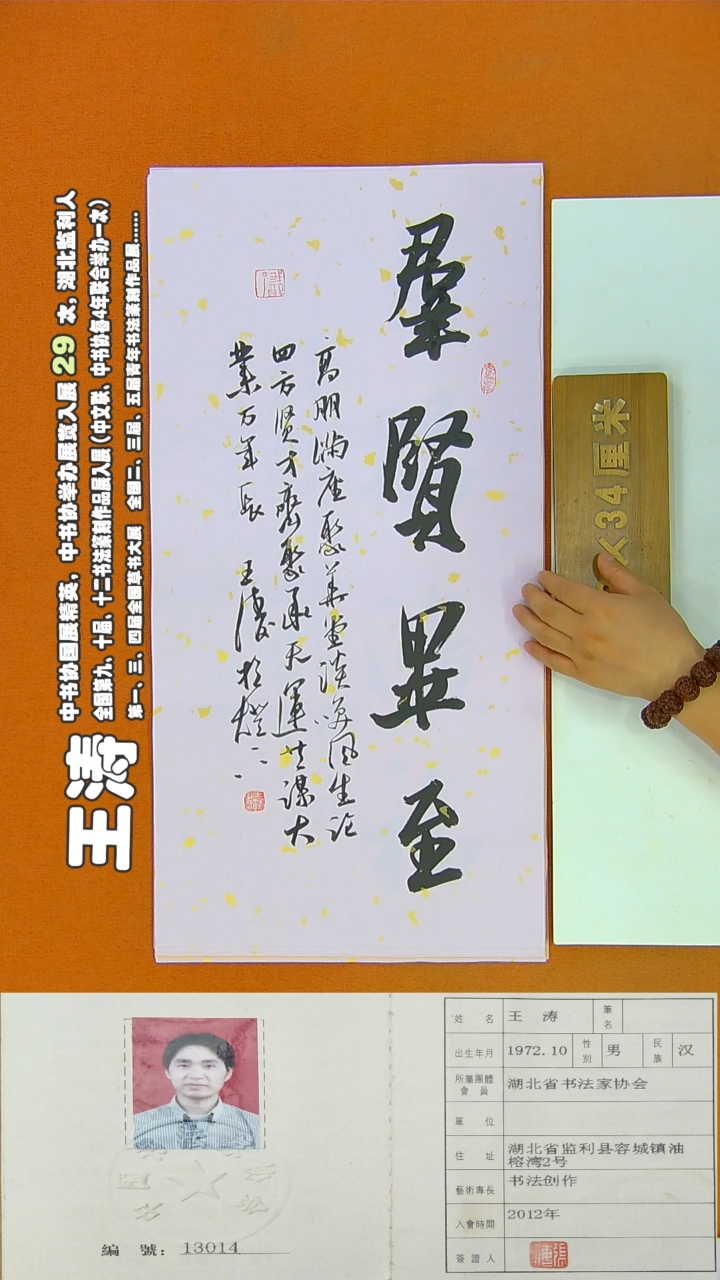 羣賢畢至
高朋满座聚華堂談笑風生论
四方贤才齊聚承天運共谋大
業万年长 王涛
王涛
中书协国展精英，中书协举办展览入展 29 次，湖北监利人
全国第九、十届、十二书法篆刻作品展入展（中文联、中书协每4年联合举办一次）
第一、三、四届全国草书大展 全国二、三届、五届青年书法篆刻作品展……
34厘米
編 號：13014
姓 名 王 涛 筆名
出生年月 1972.10 性別 男 民族 汉
所屬團體會員 湖北省书法家协会
單 位
住 址 湖北省监利县容城镇油榕湾2号
藝術專長 书法创作
入會時間 2012年
簽證人